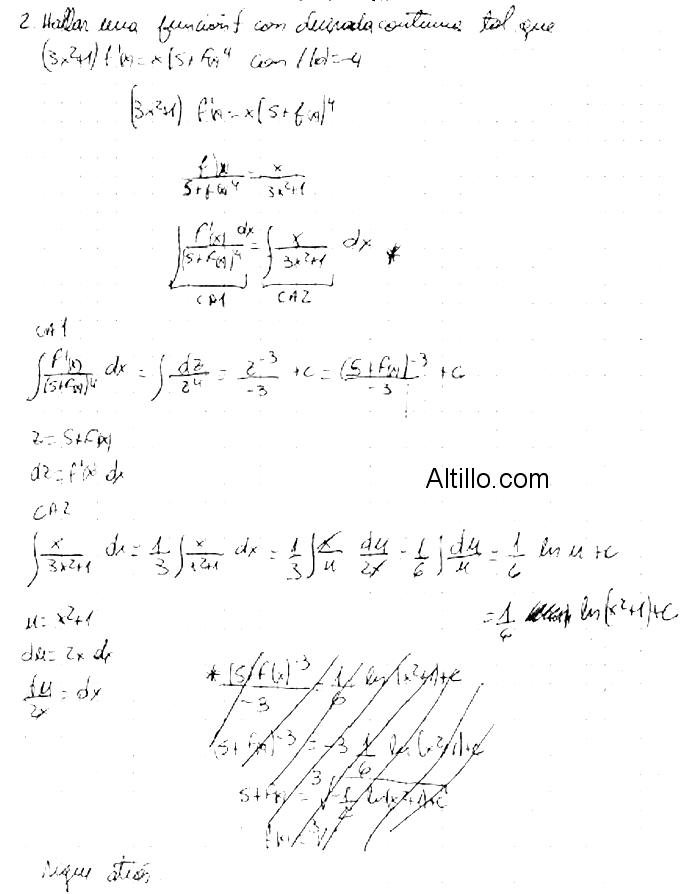 2. Hallar una función f con derivada continua tal que
(3x²+1) f'(x) = x [5+f(x)⁴ con f(0)=-4
(3x²+1) f'(x) = x [5+f(x)]⁴
f'(x)/5+f(x)⁴ = x/3x²+1
∫ f'(x)/(5+f(x))⁴ dx = ∫ x/3x²+1 dx *
CA1 CA2
CA1
∫ f'(x)/(5+f(x))⁴ dx = ∫ dz/z⁴ = z⁻³/-3 + c = (5+f(x))⁻³/-3 + c
z = 5+f(x)
dz = f'(x) dx
Altillo.com
CA2
∫ x/3x²+1 dx = 1/3 ∫ x/x²+1 dx = 1/3 ∫ x/u du/2x = 1/6 ∫ du/u = 1/6 ln u + c
= 1/6 ln(x²+1)+c
u = x²+1
du = 2x dx
du/2x = dx
* (5+f(x))⁻³/-3 = 1/6 ln(x²+1)+c
(5+f(x))⁻³ = -3 1/6 ln(x²+1)+c
5+f(x) =
f(x) =
sigue atrás